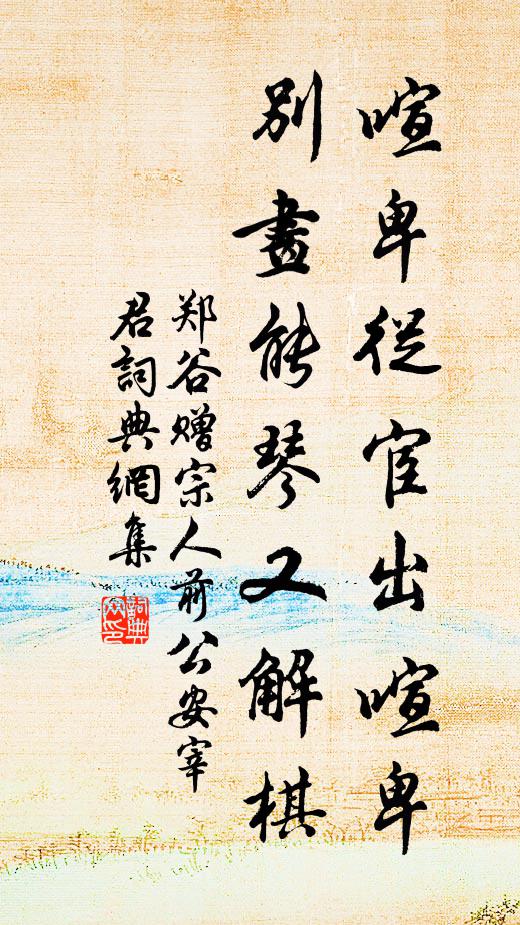 喧卑從宦出喧卑
別畫能琴又解棋
郑谷赠宗人前公安宰
君詞典網集
詞典